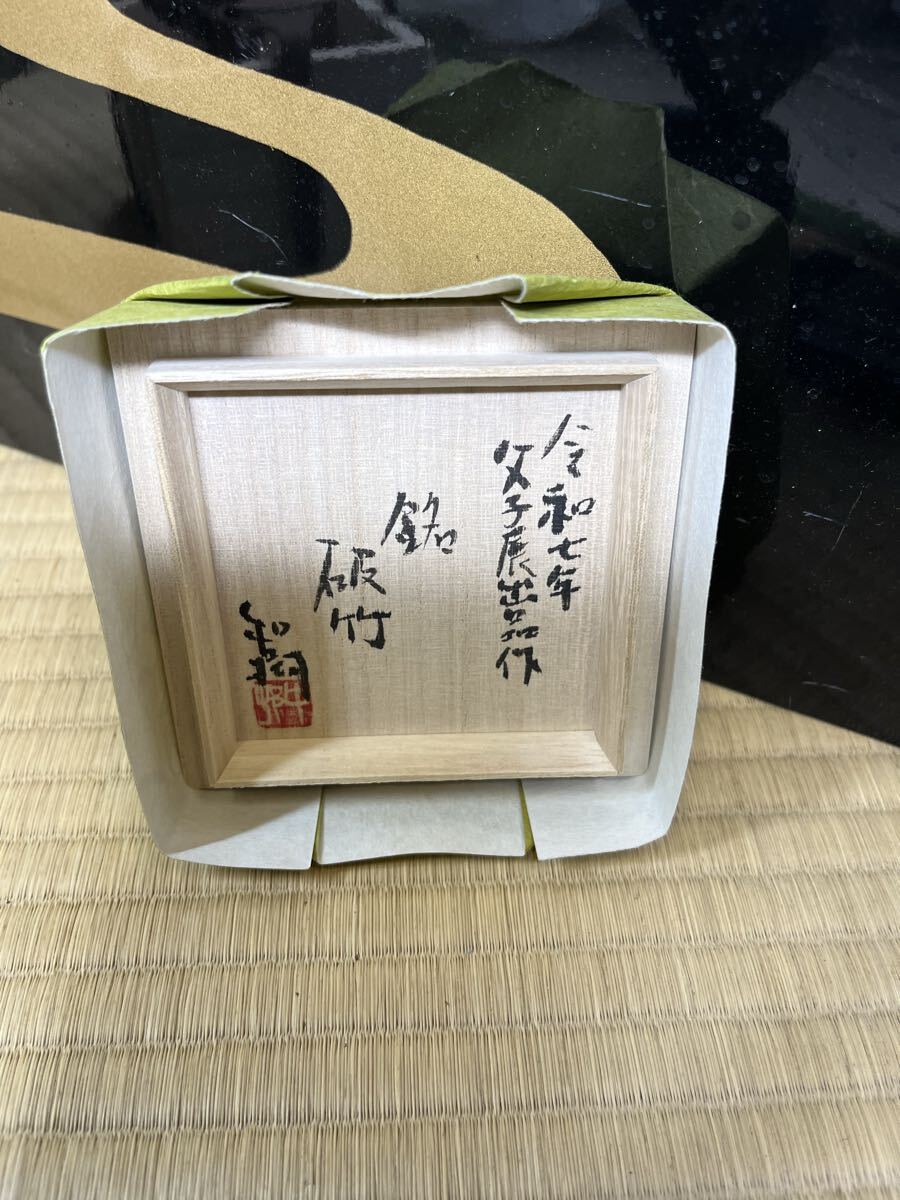 令和七年
父子展出品作
銘
破竹